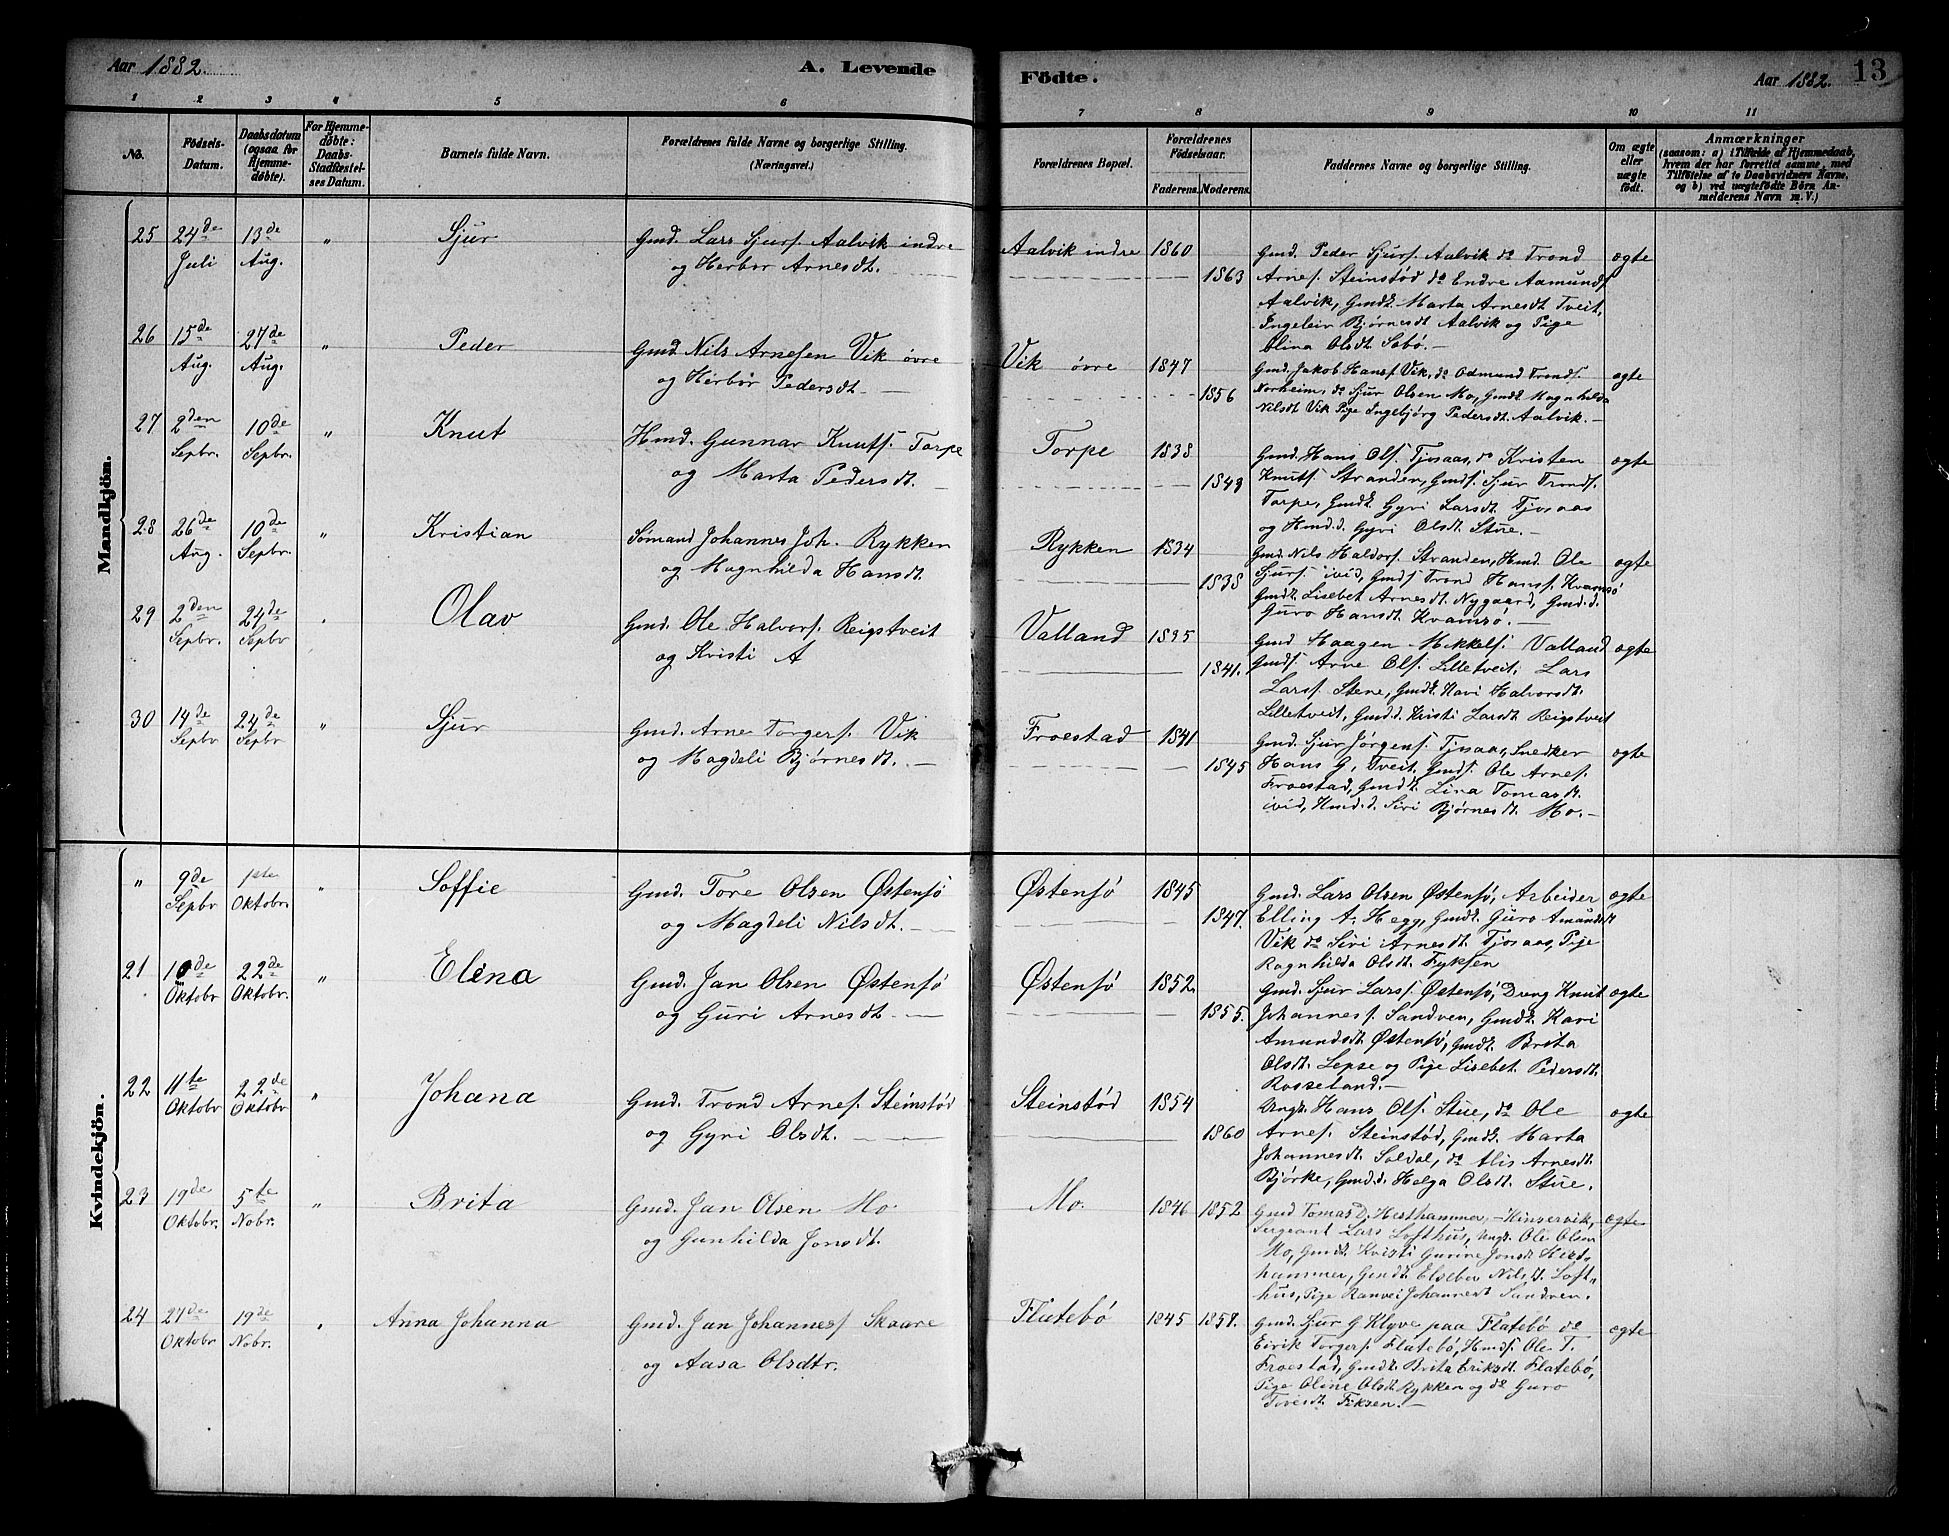 Aar 1882. A. Levende Födte. Aar 1882. 13
1 2 3 4 5 6 7 8 9 10 11
No. Födsels-Datum. Daabsdatum (ogsaa for Hjemmedøbte). For Hjemmedøbte: Daabs-Stadfæstelses Datum. Barnets fulde Navn. Forældrenes fulde Navne og borgerlige Stilling. (Næringsvei.) Forældrenes Bopæl. Forældrenes Födselsaar. Faderens. Moderens. Faddernes Navne og borgerlige Stilling. Om ægte eller uægte födt. Anmærkninger (saasom: a) i Tilfælde af Hjemmedaab, hvem der har forrettet samme, med Tilføielse af to Daabsvidners Navne, og b) ved uægtefödte Börn Anmelderens Navn m. V.)
Mandkjön.
25 24de Juli 13de Aug. " Sjur Gmd. Lars Sjurs. Aalvik indre
og Herbor Arnesdt. Aalvik indre 1860 1863
Gmd. Peder Sjurs. Aalvik do Trond
Arnes. Steinstød do Endre Aamunds.
Aalvik, Gmdk. Marta Arnesdt Tveit,
Ingeleiv Bjørnesdt Aalvik og Pige
Elina Olsdt Sebø. — ægte
26 15de Aug. 27de Aug. " Peder Gmd. Nils Arnesen Vik øvre
og Herbor Pedersdt. — Vik øvre 1847 1856
Gmd. Jakob Hans. Vik, do Odmund Tronds.
Norheim, do Sjur Olsen Mo, Gmdk. Magnhilda
Nilsdt Vik Pige Ingebjørg Pedersdt. Aalvik. — ægte
27 2den Sepbr. 10de Sepbr. " Knut Hmd. Gunnar Knuts. Torpe
og Marta Pedersdt. — Torpe 1838 1849
Gmd. Hans Ols. Tjosaas, do Kristen
Knuts. Stranden, Gmds. Sjur Tronds.
Torpe, Gmdk. Gyri Larsdt. Tjosaas
og Hmd.d. Gyri Olsdt. Stue. — ægte
28 26de Aug. 10de Sepbr. " Kristian Sømand Johannes Joh. Rykken
og Magnhilda Hansdt. Rykken 1834 1838
Gmd. Nils Haldors. Stranden, Hmd. Ole
Sjurs. ivid, Gmds. Trond Hans. Kvamsø
Gmdk. Lisebet Arnesdt. Nygaard, Gmd.d.
Guro Hansdt. Kvamsø. — ægte
29 2den Sepbr. 24de Sepbr " Olav Gmd. Ole Halvors. Reigstveit
og Kristi A Valland 1835 1841.
Gmd Haagen Mikkels. Valland
Gmds. Arne Ols. Lilletveit, Lars
Lars. Stene, Gmdk. Kari Halvorsdt.
Lilletveit, Gmd.d. Kristi Larsdt. Reigstveit ægte
30 14de Sepbr 24de Sepbr " Sjur Gmd. Arne Torgers. Vik
og Magdeli Bjørnesdt. — Froestad 1841 1845
Gmd. Sjur Jørgens. Tjosaas, Snedker
Hans G. Tveit. Gmds. Ole Arnes.
Froestad, Gmdk. Lina Tomasdt
ivid, Hmd.d. Siri Bjørnesdt. Mo. — ægte
Kvindekjön.
" 9de Sepbr 1ste Oktobr. " Soffie Gmd. Tore Olsen Østensø
og Magdeli Nilsdt. — Østensø 1845 1847.
Gmd. Lars Olsen Østensø, Arbeider
Elling A. Hegg, Gmdk. Guro Amundsdt
Vik do Siri Arnesdt. Tjosaas, Pige
Ragnhilda Olsdt. Fyksen ægte
21 10de Oktobr 22de Oktobr. " Elina Gmd. Jan Olsen Østensø
og Guri Arnesdt. — Østensø 1852. 1855.
Gmd. Sjur Lars. Østensø, Dreng Knut
Johannes. Sandven, Gmdk. Kari
Amundsdt Østensø, Gmdk. Brita
Olsdt. Lepse og Pige Lisebet Pedersdt.
Rosseland. — ægte
22 11te Oktobr 22de Oktobr " Johana Gmd. Trond Arnes. Steinstød
og Gyri Olsdt. Steinstød 1854 1860
Ungk. Hans Ols. Stue, do Ole
Arnes. Steinstød, Gmdk. Marta
Johannesdt. Soldal, do Alis Arnesdt.
Bjørke, Gmd.d. Helga Olsdt. Stue. ægte
23 19de Oktobr. 5te Nobr. " Brita Gmd. Jan Olsen Mo.
og Gunhilda Jonsdt. Mo. 1846 1852
Gmd Tomas D. Hesthammer, Kinservik,
Sergeant Lars Lofthus, Ungk. Ole Olsen
Mo, Gmdk. Kristi Gurine Jonsdt Hest-
hammer, Gmdk. Elsebe Nilsdt. Loft-
hus, Pige Ranvei Johannesdt Sandven. ægte
24 27de Oktobr 19de Nobr. " Anna Johanna Gmd. Jan Johannes. Skaare
og Aasa Olsdtr. Flatebø 1845 1857.
Gmd. Sjur G Klyve paa Flatebø do
Eirik Torgers. Flatebø, Hmds. Ole T.
Froestad, Gmdk. Brita Eriksdt. Flatebø,
Pige Oline Olsdt. Rykken og do Guro
Toresdt Fiksen. — ægte